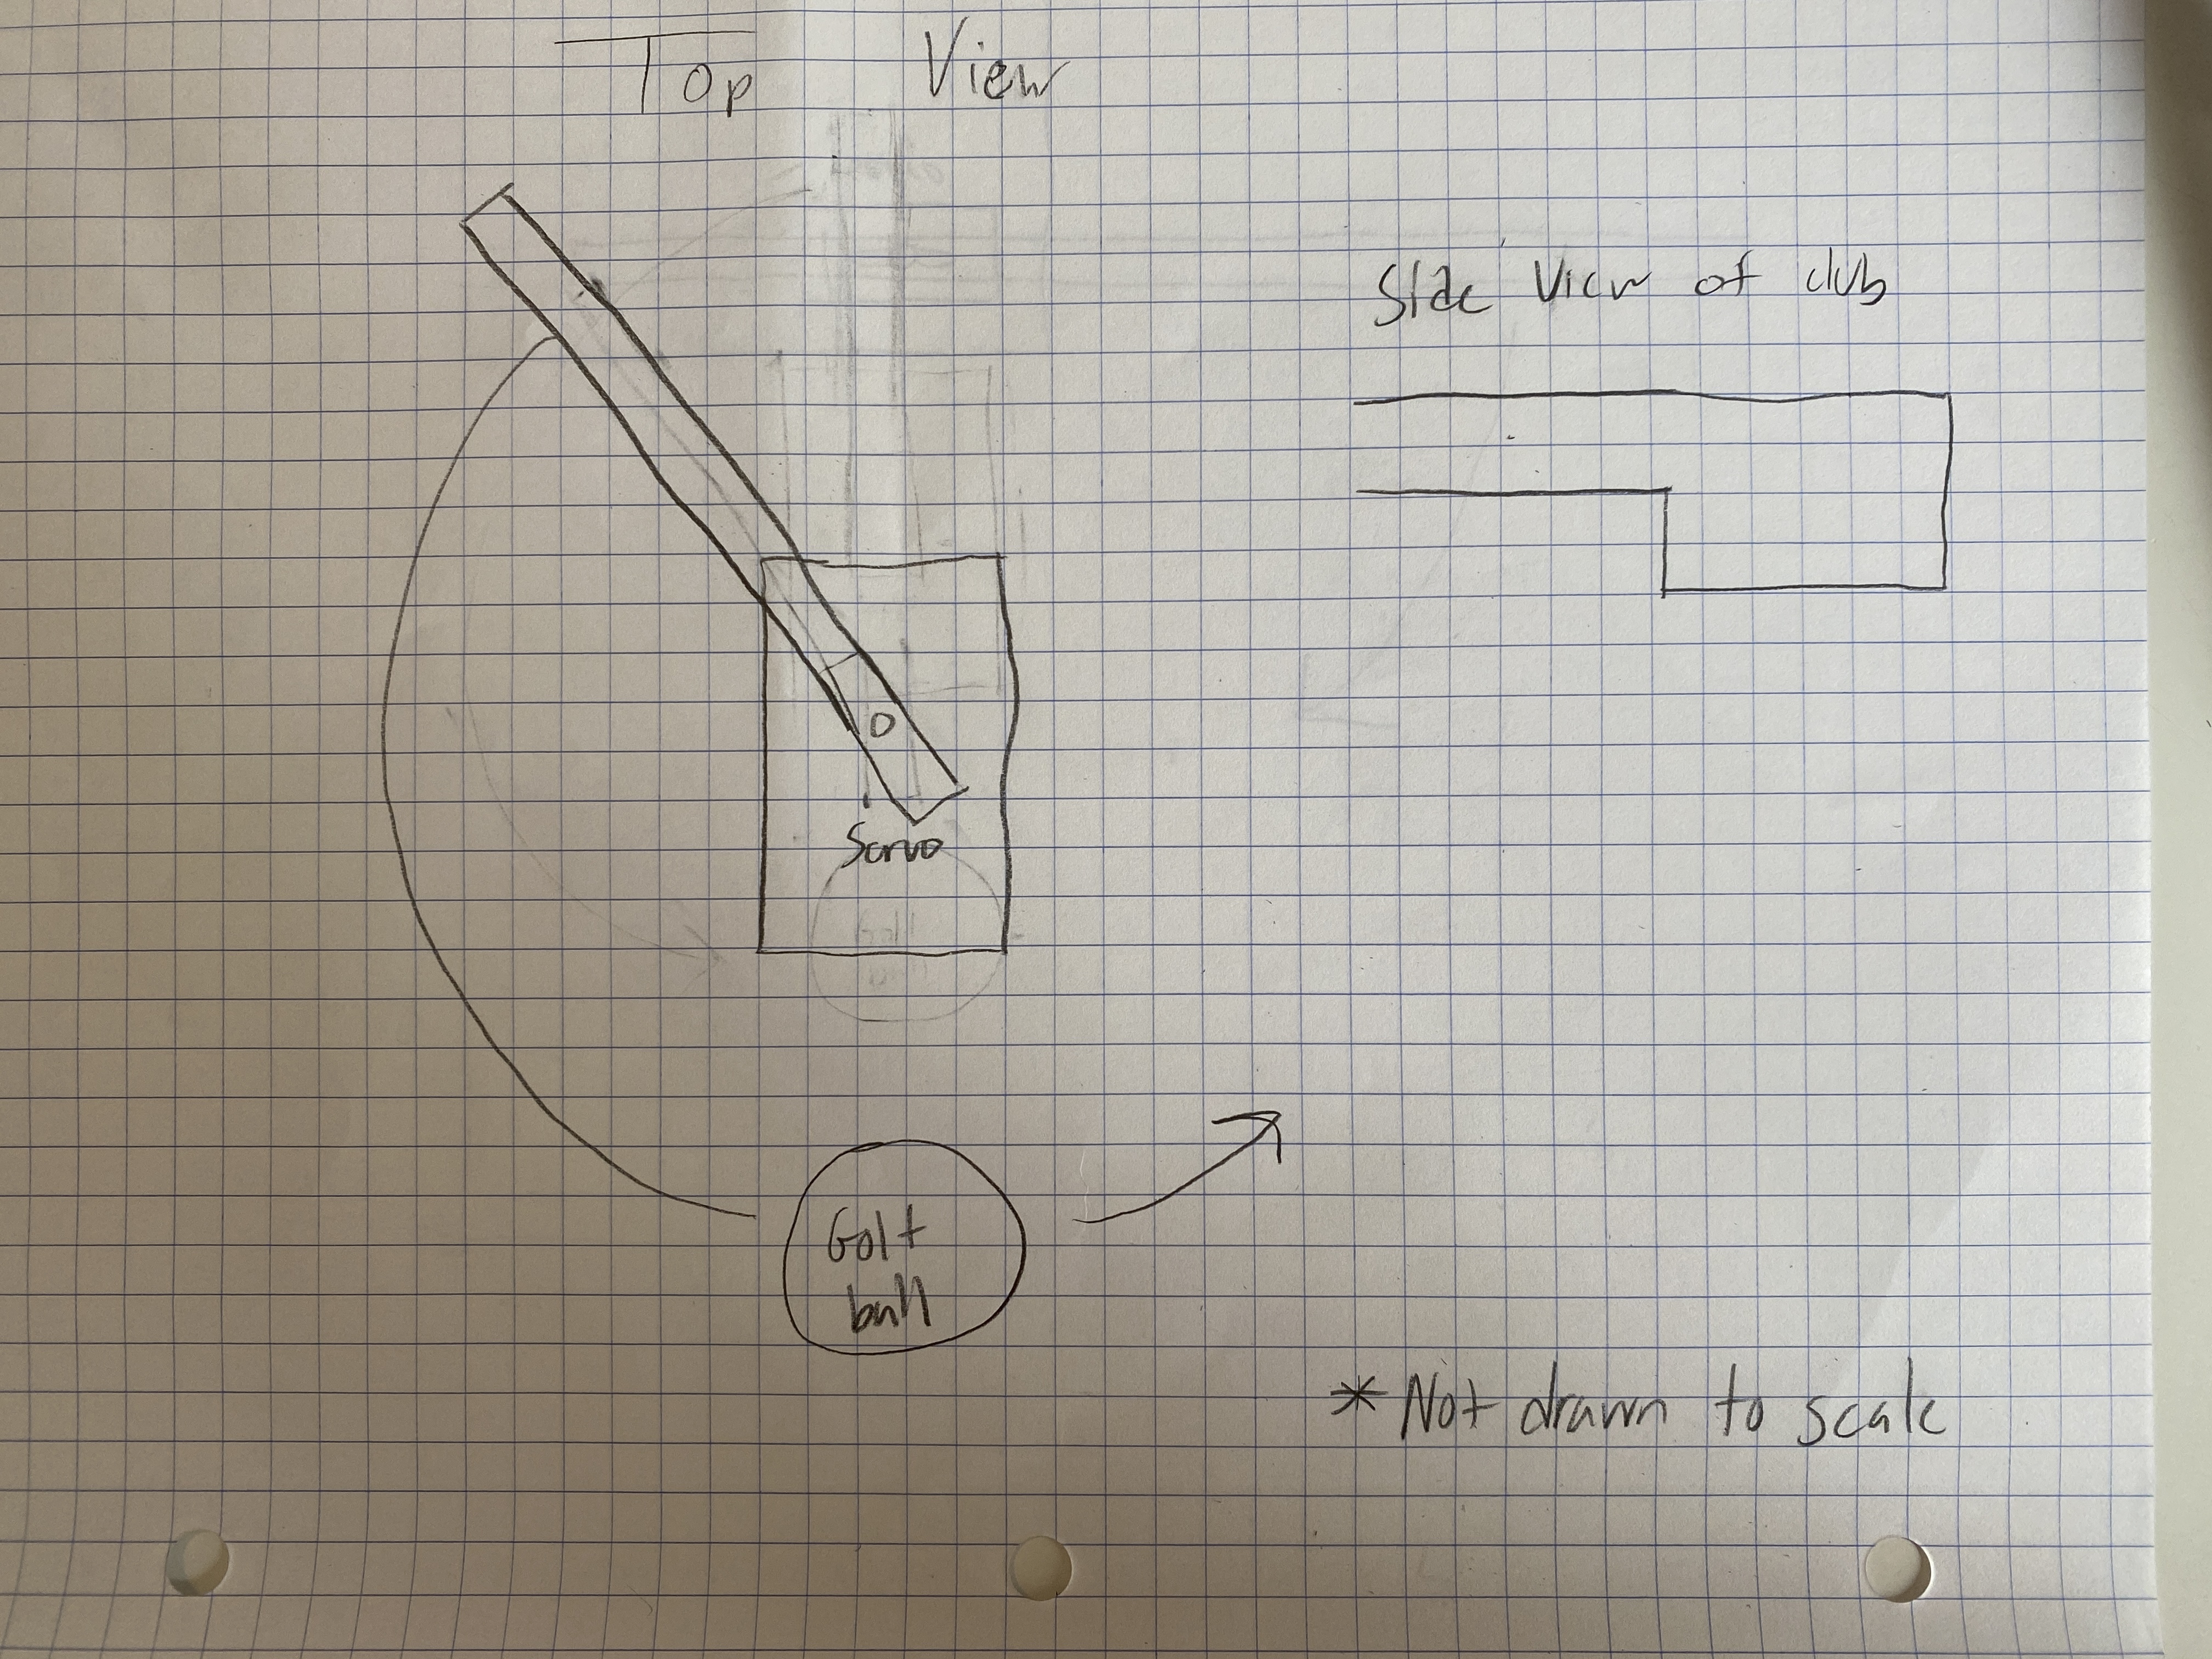 Top View
Side View of club
O
Servo
Golf
ball
* Not drawn to scale